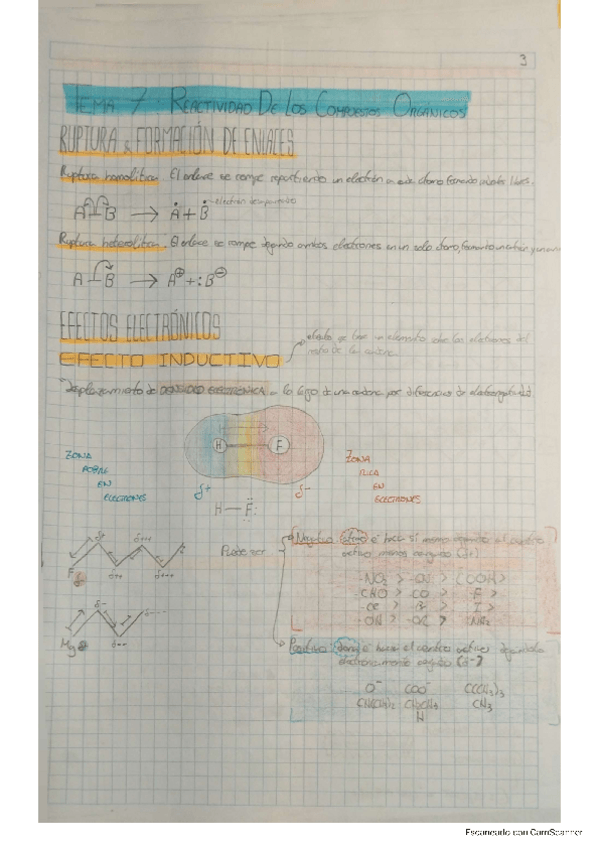 3
TEMA 7: REACTIVIDAD DE LOS COMPUESTOS ORGÁNICOS
RUPTURA & FORMACIÓN DE ENLACES
Ruptura homolítica. El enlace se rompe repartiendo un electrón a cada átomo formando radicales libres.
A B → A + B
Ruptura heterolítica. El enlace se rompe dejando ambos electrones en un solo átomo, formando
A - B → A⊕ + :B⊖
EFECTOS ELECTRÓNICOS
EFECTO INDUCTIVO
efecto que un elemento sobre los electrones del
resto de la cadena
Desplazamiento de DENSIDAD ELECTRÓNICA a lo largo de una cadena por diferencias de electronegatividad
H F
ZONA POBRE EN ELECTRONES
δ+ δ-
ZONA RICA EN ELECTRONES
H — F:
F δ+ δ++ δ+++
Puede ser
Negativo: atrae é hacia sí mismo dejando al centro
activo menos cargado (δ+)
-NO2 > -CN > COOH >
-CHO > -CO > -F >
> Br > I >
-OH > -OR > NH2
Mg δ- δ-- δ---
Positivo: dona é hacia el centro activo dejándolo
electrónicamente cargado (δ-)
O⁻ COO⁻ C(CH3)3
CH(CH3)2 CH3
H
Escaneado con CamScanner